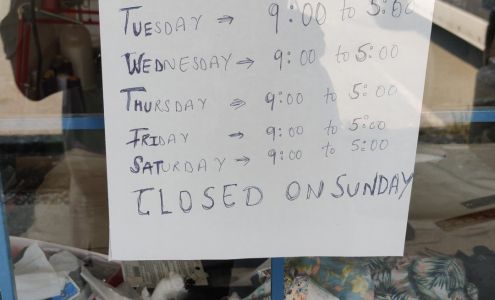 TUESDAY → 9:00 to 5:00
WEDNESDAY → 9:00 to 5:00
THURSDAY ⇒ 9:00 to 5:00
FRIDAY → 9:00 to 5:00
SATURDAY → 9:00 to 5:00
CLOSED ON SUNDAY